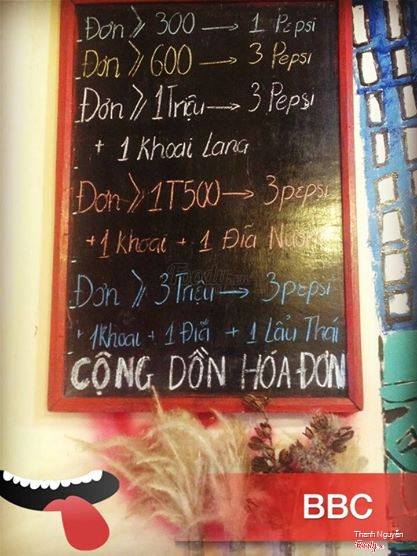 Đơn ≥ 300 → 1 Pepsi
Đơn ≥ 600 → 3 Pepsi
Đơn ≥ 1Triệu → 3 Pepsi
+ 1 Khoai Lang
Đơn ≥ 1T500 → 3pepsi
+ 1 khoai + 1 Đĩa
Đơn ≥ 3Triệu → 3pepsi
+ 1Khoai + 1 Đĩa + 1 Lẩu Thái
CỘNG DỒN HÓA ĐƠN
BBC
Thanh Nguyễn
Foody.vn